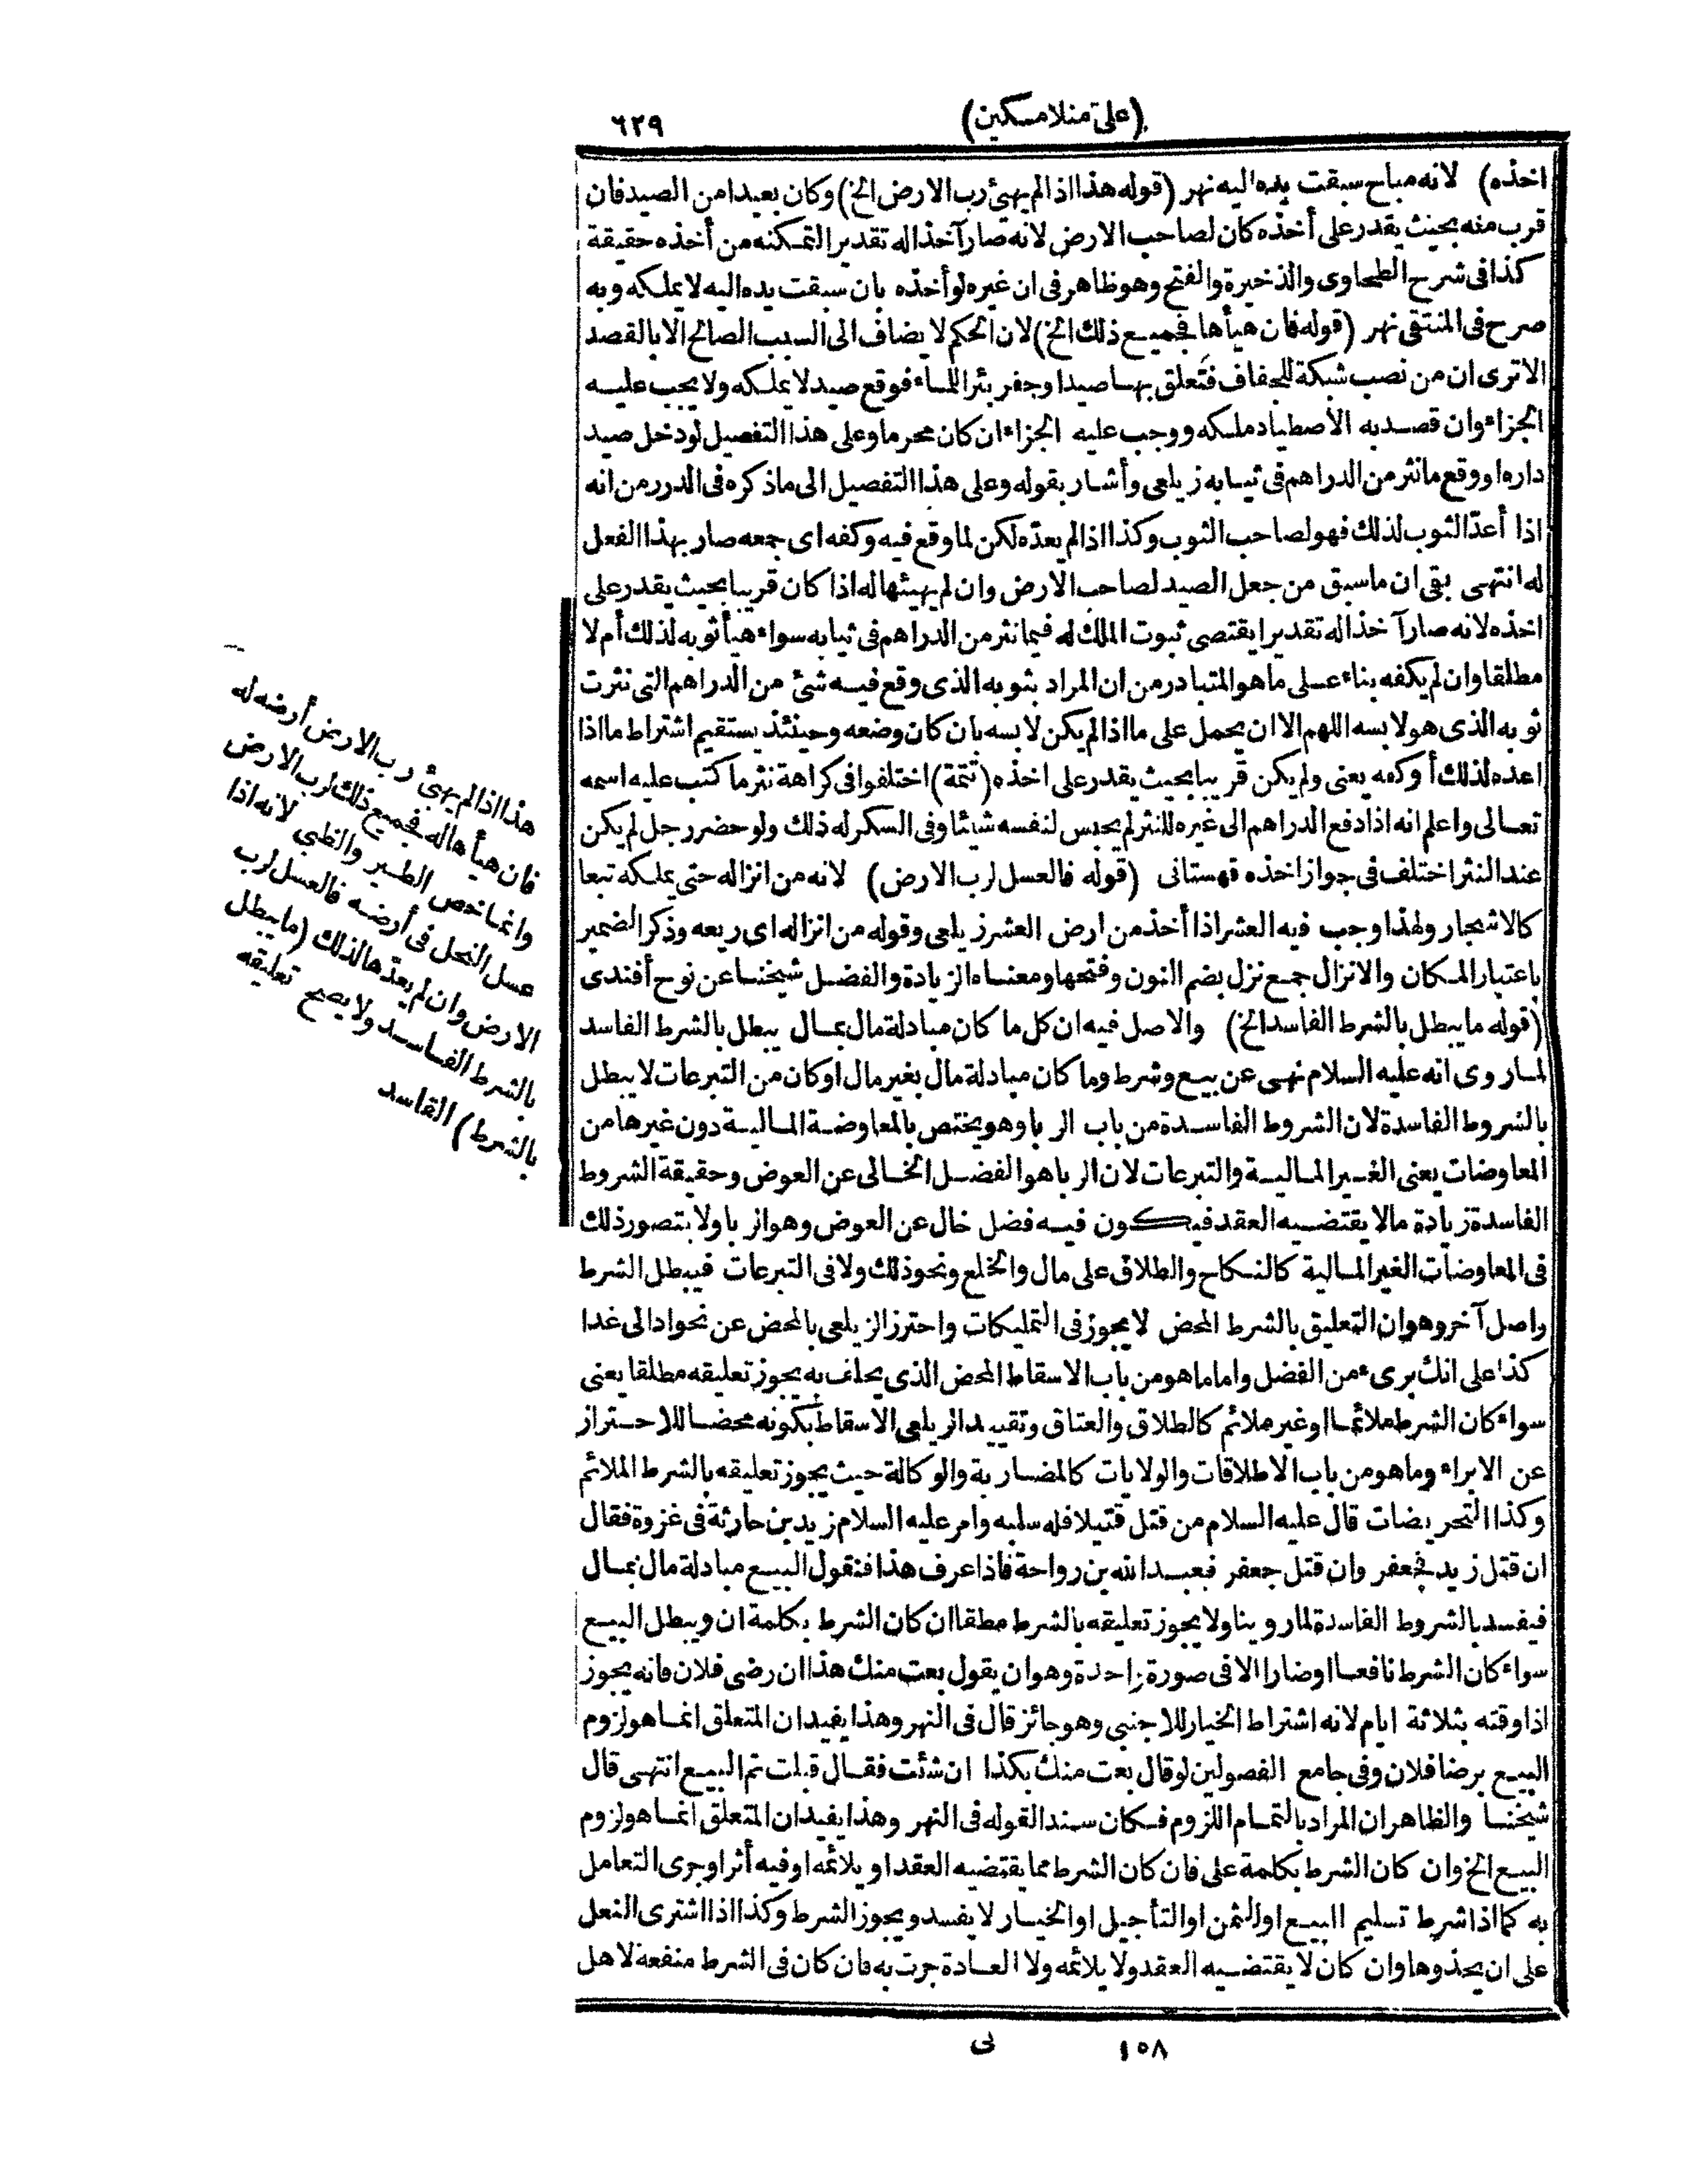 (على منلا مسكين)
٦٢٩
اخذه) لانه مباح سبقت يده اليه نهر (قوله هذا اذا لم يهيئ رب الارض الخ) وكان بعيدا من الصيد فان
قرب منه بحيث يقدر على أخذه كان لصاحب الارض لانه صار آخذا له تقديرا لتمكنه من أخذه حقيقة
كذا فى شرح الطحاوى والذخيرة والفتح وهو ظاهر فى ان غيره لو أخذه بان سبقت يده اليه لا يملكه وبه
صرح فى المنتقى نهر (قوله فان هيأها فجميع ذلك الخ) لان الحكم لا يضاف الى السبب الصالح الا بالقصد
الا ترى ان من نصب شبكة للجفاف فتعلق بها صيد او حفر بئرا للماء فوقع صيد لا يملكه ولا يجب عليه
الجزاء وان قصد به الاصطياد ملكه ووجب عليه الجزاء ان كان محرما وعلى هذا التفصيل لو دخل صيد
داره او وقع ما نثر من الدراهم فى ثيابه زيلعى وأشار بقوله وعلى هذا التفصيل الى ما ذكره فى الدرر من انه
اذا أعدّ الثوب لذلك فهو لصاحب الثوب وكذا اذا لم يعدّه لكن لما وقع فيه وكفه اى جمعه صار بهذا الفعل
له انتهى بقى ان ما سبق من جعل الصيد لصاحب الارض وان لم يهيئها له اذا كان قريبا بحيث يقدر على
اخذه لانه صار آخذا له تقديرا يقتضى ثبوت الملك له فيما نثر من الدراهم فى ثيابه سواء هيأ ثوبه لذلك أم لا
مطلقا وان لم يكفه بناء على ما هو المتبادر من ان المراد بثوبه الذى وقع فيه شئ من الدراهم التى نثرت
ثوبه الذى هو لابسه اللهم الا ان يحمل على ما اذا لم يكن لابسه بان كان وضعه وحينئذ يستقيم اشتراط ما اذا
اعده لذلك أو كفه يعنى ولم يكن قريبا بحيث يقدر على اخذه (تتمة) اختلفوا فى كراهة نثر ما كتب عليه اسمه
تعالى واعلم انه اذا دفع الدراهم الى غيره للنثر لم يحبس لنفسه شيئا وفى السكر له ذلك ولو حضر رجل لم يكن
عند النثر اختلف فى جواز اخذه قهستانى (قوله فالعسل لرب الارض) لانه من انزاله حتى يملكه تبعا
كالاشجار ولهذا وجب فيه العشر اذا أخذ من ارض العشر زيلعى وقوله من انزاله اى ريعه وذكر الضمير
باعتبار المكان والانزال جمع نزل بضم النون وفتحها ومعناه الزيادة والفضل شيخنا عن نوح أفندى
(قوله ما يبطل بالشرط الفاسد الخ) والاصل فيه ان كل ما كان مبادلة مال بمال يبطل بالشرط الفاسد
لما روى انه عليه السلام نهى عن بيع وشرط وما كان مبادلة مال بغير مال او كان من التبرعات لا يبطل
بالشروط الفاسدة لان الشروط الفاسدة من باب الربا وهو يختص بالمعاوضة المالية دون غيرها من
المعاوضات يعنى الغير المالية والتبرعات لان الربا هو الفضل الخالى عن العوض وحقيقة الشروط
الفاسدة زيادة ما لا يقتضيه العقد فيكون فيه فضل خال عن العوض وهو الربا ولا يتصور ذلك
فى المعاوضات الغير المالية كالنكاح والطلاق على مال والخلع ونحو ذلك ولا فى التبرعات فيبطل الشرط
واصل آخر وهو ان التعليق بالشرط المحض لا يجوز فى التمليكات واحترز الزيلعى بالمحض عن نحو اد الى غدا
كذا على انك برىء من الفضل واما ما هو من باب الاسقاط المحض الذى يحلف به يجوز تعليقه مطلقا يعنى
سواء كان الشرط ملائما او غير ملائم كالطلاق والعتاق وتقييد الزيلعى الاسقاط بكونه محضا للاحتراز
عن الابراء وما هو من باب الاطلاقات والولايات كالمضاربة والوكالة حيث يجوز تعليقه بالشرط الملائم
وكذا التحريضات قال عليه السلام من قتل قتيلا فله سلبه وامر عليه السلام زيد بن حارثة فى غزوة فقال
ان قتل زيد فجعفر وان قتل جعفر فعبد الله بن رواحة فاذا عرف هذا فنقول البيع مبادلة مال بمال
فيفسد بالشروط الفاسدة لما روينا ولا يجوز تعليقه بالشرط مطلقا ان كان الشرط بكلمة ان ويبطل البيع
سواء كان الشرط نافعا او ضارا الا فى صورة واحدة وهو ان يقول بعت منك هذا ان رضى فلان فانه يجوز
اذا وقته بثلاثة ايام لانه اشتراط الخيار للاجنبى وهو جائز قال فى النهر وهذا يفيد ان المتعلق انما هو لزوم
البيع برضا فلان وفى جامع الفصولين لو قال بعت منك بكذا ان شئت فقال قبلت تم البيع انتهى قال
شيخنا والظاهر ان المراد بالتمام اللزوم فكان سندا لقوله فى النهر وهذا يفيد ان المتعلق انما هو لزوم
البيع الخ وان كان الشرط بكلمة على فان كان الشرط مما يقتضيه العقد او يلائمه او فيه أثر او جرى التعامل
به كما اذا شرط تسليم المبيع او الثمن او التأجيل او الخيار لا يفسد ويجوز الشرط وكذا اذا اشترى النعل
على ان يحذوها وان كان لا يقتضيه العقد ولا يلائمه ولا العادة جرت به فان كان فى الشرط منفعة لاهل
هذا اذا لم يهيئ رب الارض أرضه له
فان هيأها له فجميع ذلك لرب الارض
وانما خص الطير والظبى لانه اذا
عسل النحل فى أرضه فالعسل لرب
الارض وان لم يعدّها لذلك (ما يبطل
بالشرط الفاسد ولا يصح تعليقه
بالشرط) الفاسد
١٥٨
نى